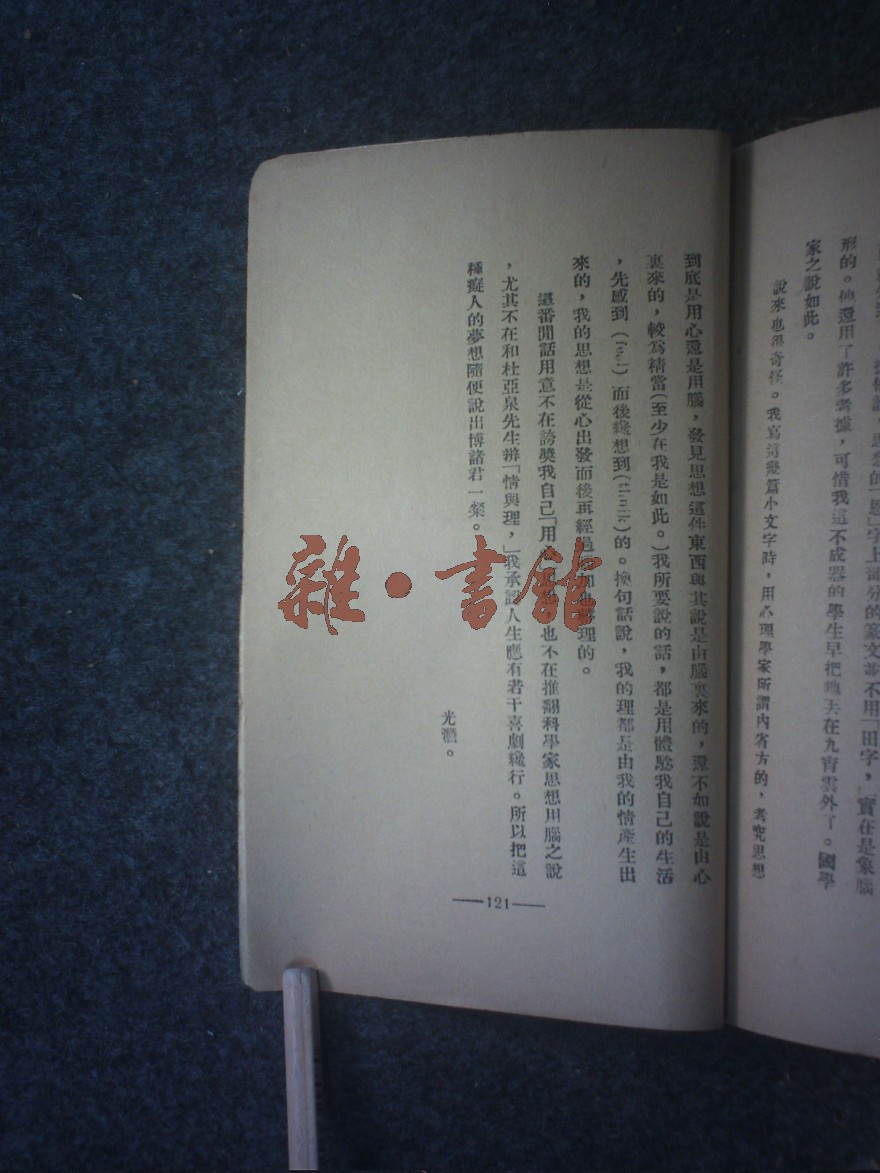 形的。他還用了許多考據，可惜我這不成器的學生早把牠丟在九霄雲外了。國學
家之說如此。
說來也很奇怪。我寫這幾篇小文字時，用心理學家所謂內省方的，考究思想
到底是用心還是用腦，發見思想這件東西與其說是由腦裏來的，還不如說是由心
裏來的，較爲精當(至少在我是如此。)我所要說的話，都是用體驗我自己的生活
，先感到(feel)而後纔想到(think)的。換句話說，我的理都是由我的情產生出
來的，我的思想是從心出發而後再經過 理的。
這番閒話用意不在誇獎我自己「用心 也不在推翻科學家思想用腦之說
，尤其不在和杜亞泉先生辨「情與理，」我承認人生應有若干喜劇纔行。所以把這
種癡人的夢想隨便說出博諸君一粲。
光潛。
—121—
雜·書館